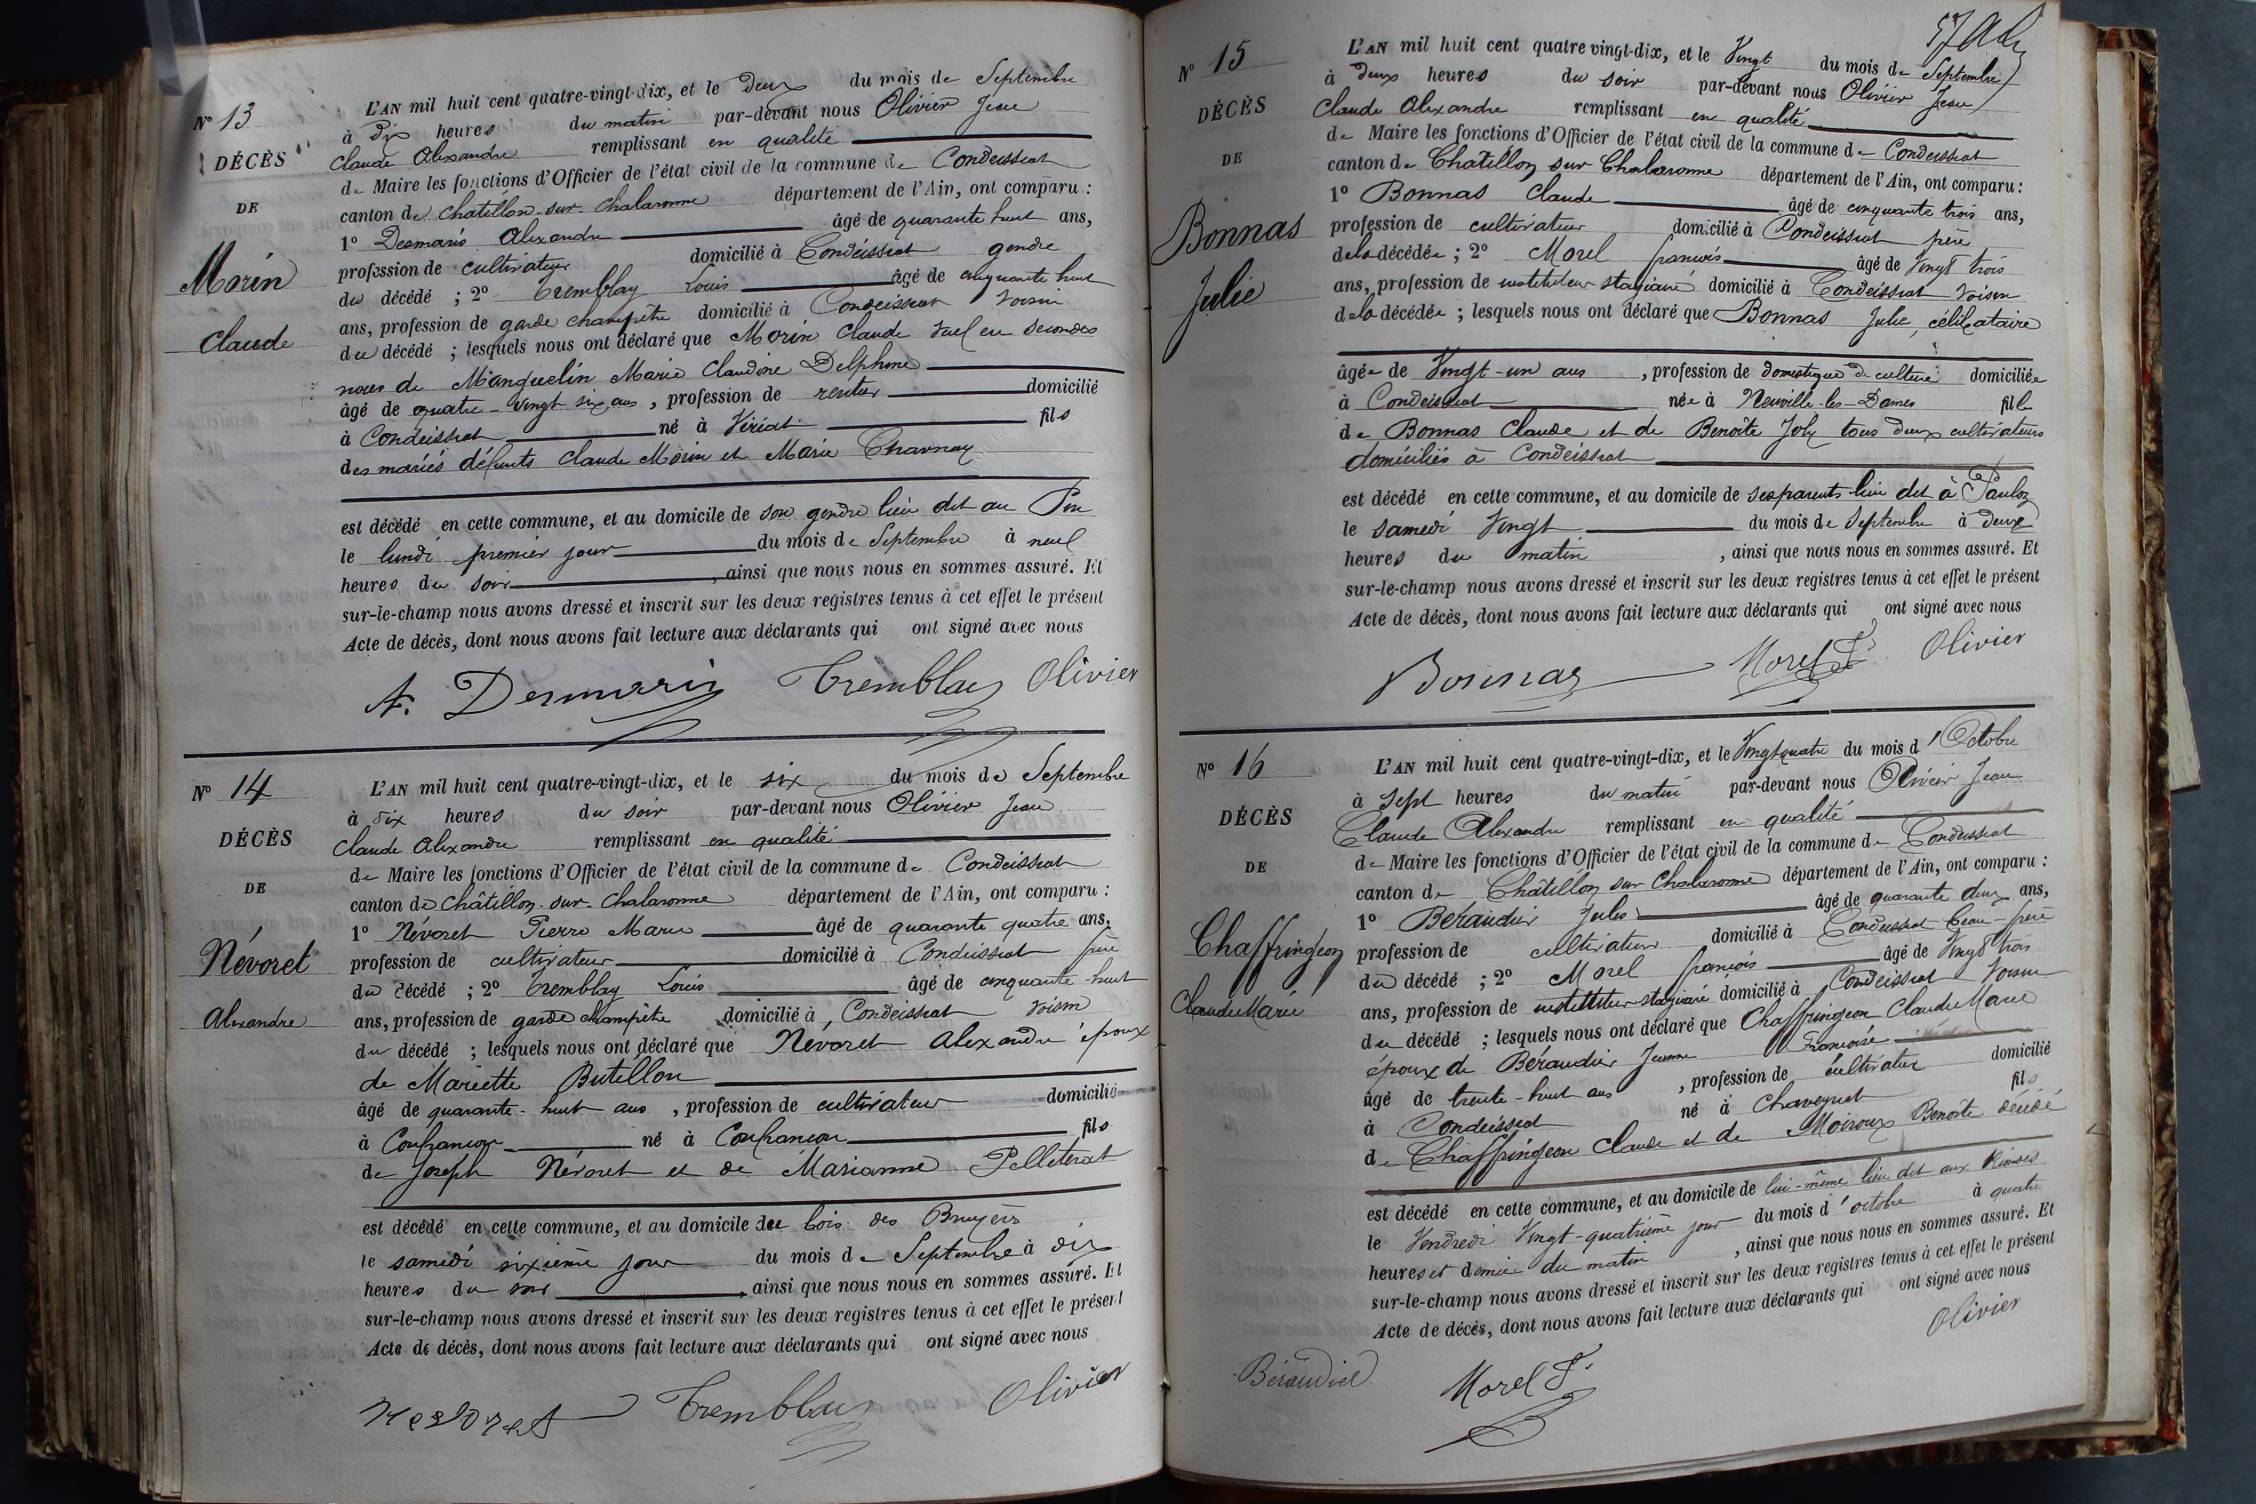 N° 13
DÉCÈS
DE
Morin
Claude
L'AN mil huit cent quatre-vingt-dix, et le Deux du mois de Septembre
à Dix heures du matin par-devant nous Olivier Jean
Claude Alexandre remplissant en qualité
de Maire les fonctions d'Officier de l'état civil de la commune de Condeissiat
canton de Chatillon-sur-Chalaronne département de l'Ain, ont comparu :
1° Desmaris Alexandre âgé de quarante huit ans,
profession de cultivateur domicilié à Condeissiat gendre
du décédé ; 2° Tremblay Louis âgé de cinquante huit
ans, profession de garde champêtre domicilié à Condeissiat voisin
du décédé ; lesquels nous ont déclaré que Morin Claude veuf en secondes
noces de Manguelin Marie Claudine Delphine
âgé de quatre-vingt six ans, profession de rentier domicilié
à Condeissiat né à Viriat fils
des mariés défunts Claude Morin et Marie Charnay
est décédé en cette commune, et au domicile de son gendre lieu dit au Pin
le lundi premier jour du mois de Septembre à neuf
heures du soir, ainsi que nous nous en sommes assuré. Et
sur-le-champ nous avons dressé et inscrit sur les deux registres tenus à cet effet le présent
Acte de décès, dont nous avons fait lecture aux déclarants qui ont signé avec nous
A. Desmaris Tremblay Olivier
N° 14
DÉCÈS
DE
Névoret
Alexandre
L'AN mil huit cent quatre-vingt-dix, et le six du mois de Septembre
à dix heures du soir par-devant nous Olivier Jean
Claude Alexandre remplissant en qualité
de Maire les fonctions d'Officier de l'état civil de la commune de Condeissiat
canton de Châtillon-sur-Chalaronne département de l'Ain, ont comparu :
1° Névoret Pierre Marie âgé de quarante quatre ans,
profession de cultivateur domicilié à Condeissiat
du décédé ; 2° Tremblay Louis âgé de cinquante-huit
ans, profession de garde champêtre domicilié à Condeissiat voisin
du décédé ; lesquels nous ont déclaré que Névoret Alexandre époux
de Mariette Butillon
âgé de quarante-huit ans, profession de cultivateur domicilié
à Confrançon né à Confrançon fils
de Joseph Névoret et de Marianne Pelleterat
est décédé en cette commune, et au domicile du bois des Bruyères
le samedi sixième jour du mois de Septembre à dix
heures du soir, ainsi que nous nous en sommes assuré. Et
sur-le-champ nous avons dressé et inscrit sur les deux registres tenus à cet effet le présent
Acte de décès, dont nous avons fait lecture aux déclarants qui ont signé avec nous
Nevoret Tremblay Olivier
N° 15
DÉCÈS
DE
Bonnas
Julie
L'AN mil huit cent quatre vingt-dix, et le Vingt du mois de Septembre
à deux heures du soir par-devant nous Olivier Jean
Claude Alexandre remplissant en qualité
de Maire les fonctions d'Officier de l'état civil de la commune de Condeissiat
canton de Chatillon sur Chalaronne département de l'Ain, ont comparu :
1° Bonnas Claude âgé de cinquante trois ans,
profession de cultivateur domicilié à Condeissiat père
de la décédée ; 2° Morel françois âgé de Vingt trois
ans, profession de instituteur stagiaire domicilié à Condeissiat voisin
de la décédée ; lesquels nous ont déclaré que Bonnas Julie, célibataire
âgée de Vingt-un ans, profession de domestique de culture domiciliée
à Condeissiat née à Neuville-les-Dames fille
de Bonnas Claude et de Benoîte Joly tous deux cultivateurs
domiciliés à Condeissiat
est décédé en cette commune, et au domicile de ses parents lieu dit à
le samedi Vingt du mois de Septembre à deux
heures du matin, ainsi que nous nous en sommes assuré. Et
sur-le-champ nous avons dressé et inscrit sur les deux registres tenus à cet effet le présent
Acte de décès, dont nous avons fait lecture aux déclarants qui ont signé avec nous
Bonnas Morel F. Olivier
N° 16
DÉCÈS
DE
Chaffringeon
Claude Marie
L'AN mil huit cent quatre-vingt-dix, et le Vingt quatre du mois d'Octobre
à sept heures du matin par-devant nous Olivier Jean
Claude Alexandre remplissant en qualité
de Maire les fonctions d'Officier de l'état civil de la commune de Condeissiat
canton de Châtillon sur Chalaronne département de l'Ain, ont comparu :
1° Béraudier Jules âgé de quarante deux ans,
profession de cultivateur domicilié à Condeissiat beau-père
du décédé ; 2° Morel françois âgé de Vingt trois
ans, profession de instituteur stagiaire domicilié à Condeissiat voisin
du décédé ; lesquels nous ont déclaré que Chaffringeon Claude Marie
époux de Béraudier Jeanne Françoise
âgé de trente-huit ans, profession de cultivateur domicilié
à Condeissiat né à Chaveyriat fils
de Chaffringeon Claude et de Moiroux Benoîte décédé
est décédé en cette commune, et au domicile de lui-même lieu dit aux
le Vendredi Vingt-quatrième jour du mois d'octobre à quatre
heures et demie du matin, ainsi que nous nous en sommes assuré. Et
sur-le-champ nous avons dressé et inscrit sur les deux registres tenus à cet effet le présent
Acte de décès, dont nous avons fait lecture aux déclarants qui ont signé avec nous
Olivier
Béraudier Morel F.